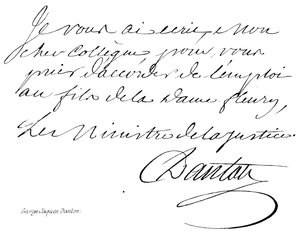 Je vous ai ecrit, mon
cher collègue pour vous
prier d'accorder de l'emploi
au fils de la Dame fleury,
Le Ministre de la justice
Danton
George Jacques Danton